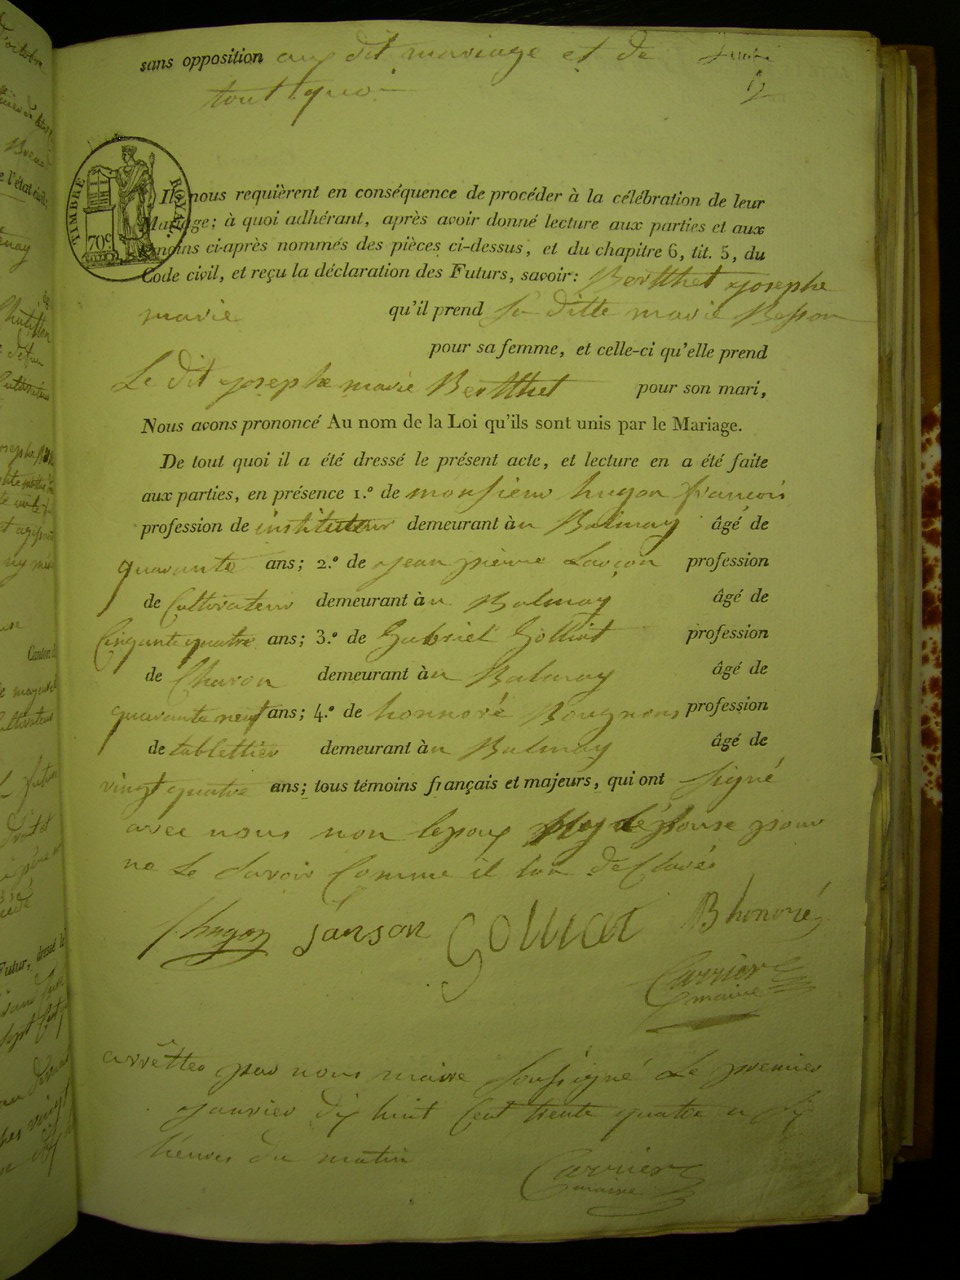 sans opposition au dit mariage et de
tout quoi
2
TIMBRE ROYAL
70c
Ils nous requièrent en conséquence de procéder à la célébration de leur
Mariage; à quoi adhérant, après avoir donné lecture aux parties et aux
témoins ci-après nommés des pièces ci-dessus, et du chapitre 6, tit. 5, du
Code civil, et reçu la déclaration des Futurs, savoir: Bertthet josephe
marie qu'il prend la ditte marie Besson
pour sa femme, et celle-ci qu'elle prend
Le dit josephe marie Bertthet pour son mari,
Nous avons prononcé Au nom de la Loi qu'ils sont unis par le Mariage.
De tout quoi il a été dressé le présent acte, et lecture en a été faite
aux parties, en présence 1.º de monsieur hugon francois
profession de instituteur demeurant à Balmay âgé de
quarante ans; 2.º de jean pierre profession
de Cultivateur demeurant à Balmay âgé de
Cinquante quatre ans; 3.º de Gabriel Golliat profession
de Charon demeurant à Balmay âgé de
quarante neuf ans; 4.º de honnoré profession
de tablettier demeurant à Balmay âgé de
vingt quatre ans; tous témoins français et majeurs, qui ont signé
avec nous non lepoux pour
ne Le Savoir Comme il lon de Claré
hugon janson Golliat B honoré
Carrier
maire
arrêttes par nous maire soussigné Le premier
janvier dix huit Cent trente quatre a dix
heures du matin
Carrier
maire